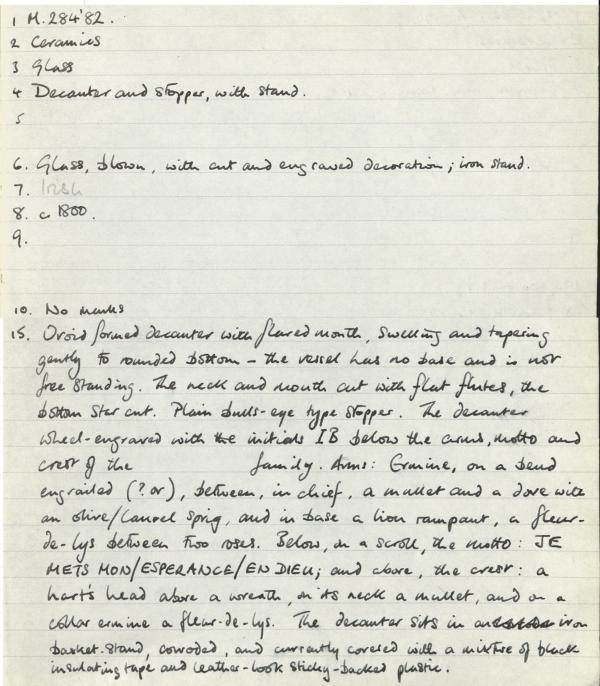 1 M.284'82.
2 Ceramics
3 Glass
4 Decanter and stopper, with stand.
5
6. Glass, blown, with cut and engraved decoration; iron stand.
7. Irish
8. c. 1800.
9.
10. No marks
15. Ovoid formed decanter with flared mouth, swelling and tapering
gently to rounded bottom – the vessel has no base and is not
free standing. The neck and mouth cut with flat flutes, the
bottom star cut. Plain bulls-eye type stopper. The decanter
wheel-engraved with the initials IB below the arms, motto and
crest of the family. Arms: Ermine, on a bend
engrailed (?or), between, in chief, a mullet and a dove with
an olive/laurel sprig, and in base a lion rampant, a fleur-
de-lys between two roses. Below, on a scroll, the motto: JE
METS MON/ESPERANCE/EN DIEU; and above, the crest: a
hart's head above a wreath, on its neck a mullet, and on a
collar ermine a fleur-de-lys. The decanter sits in an iron
basket-stand, corroded, and currently covered with a mixture of black
insulating tape and leather-look sticky-backed plastic.